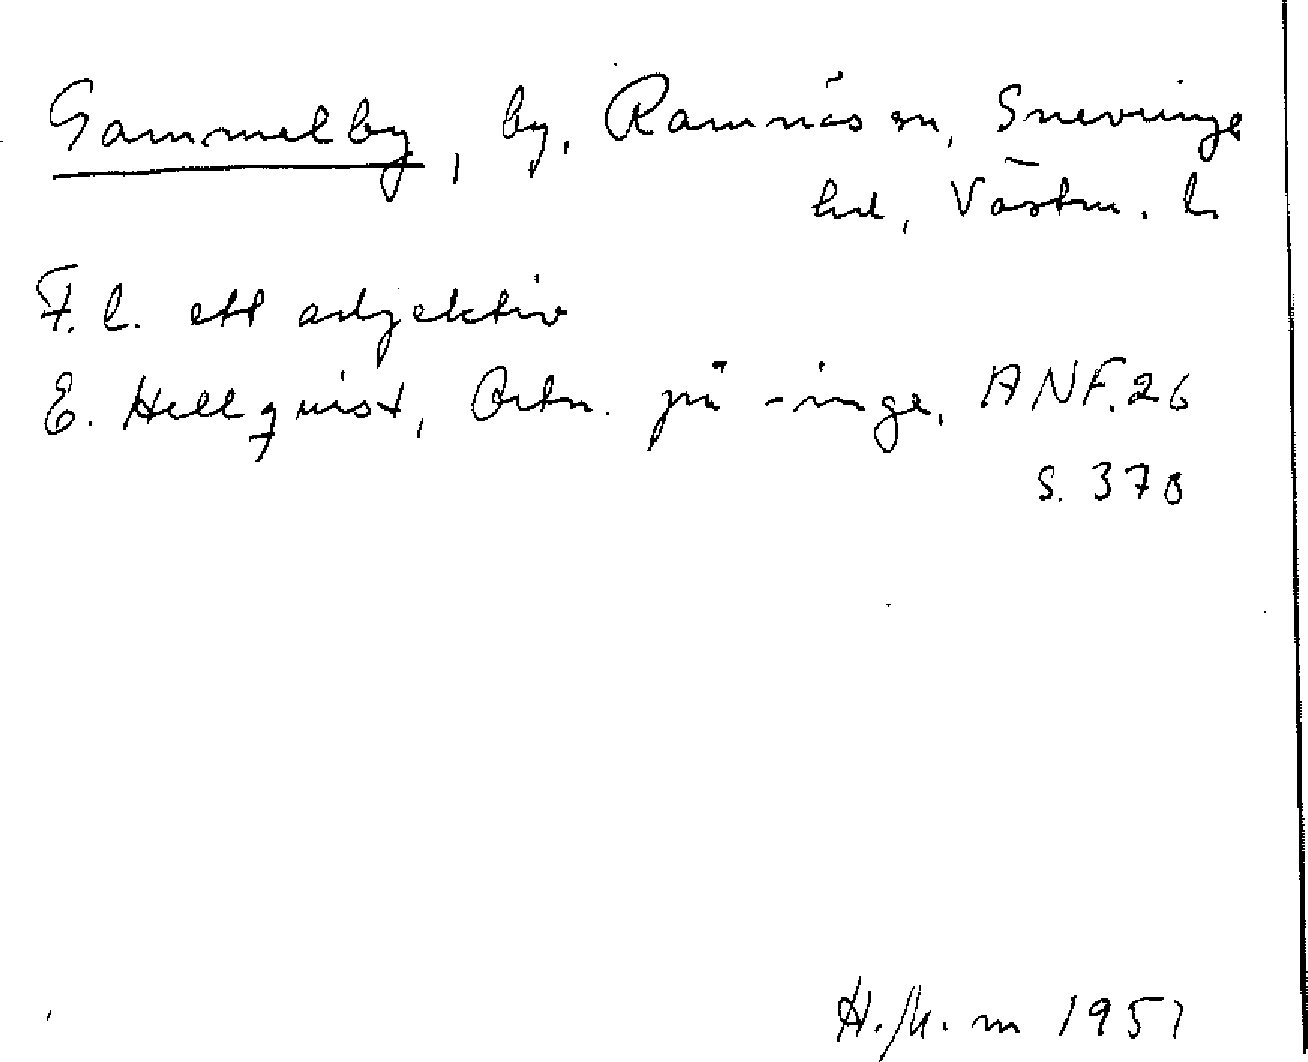 Gammelby, by, Ramnäs sn, Snevringe
hd, Västm. l.
F.l. ett adjektiv
E. Hellquist, Ortn. på -inge, ANF. 26
S. 370
1951